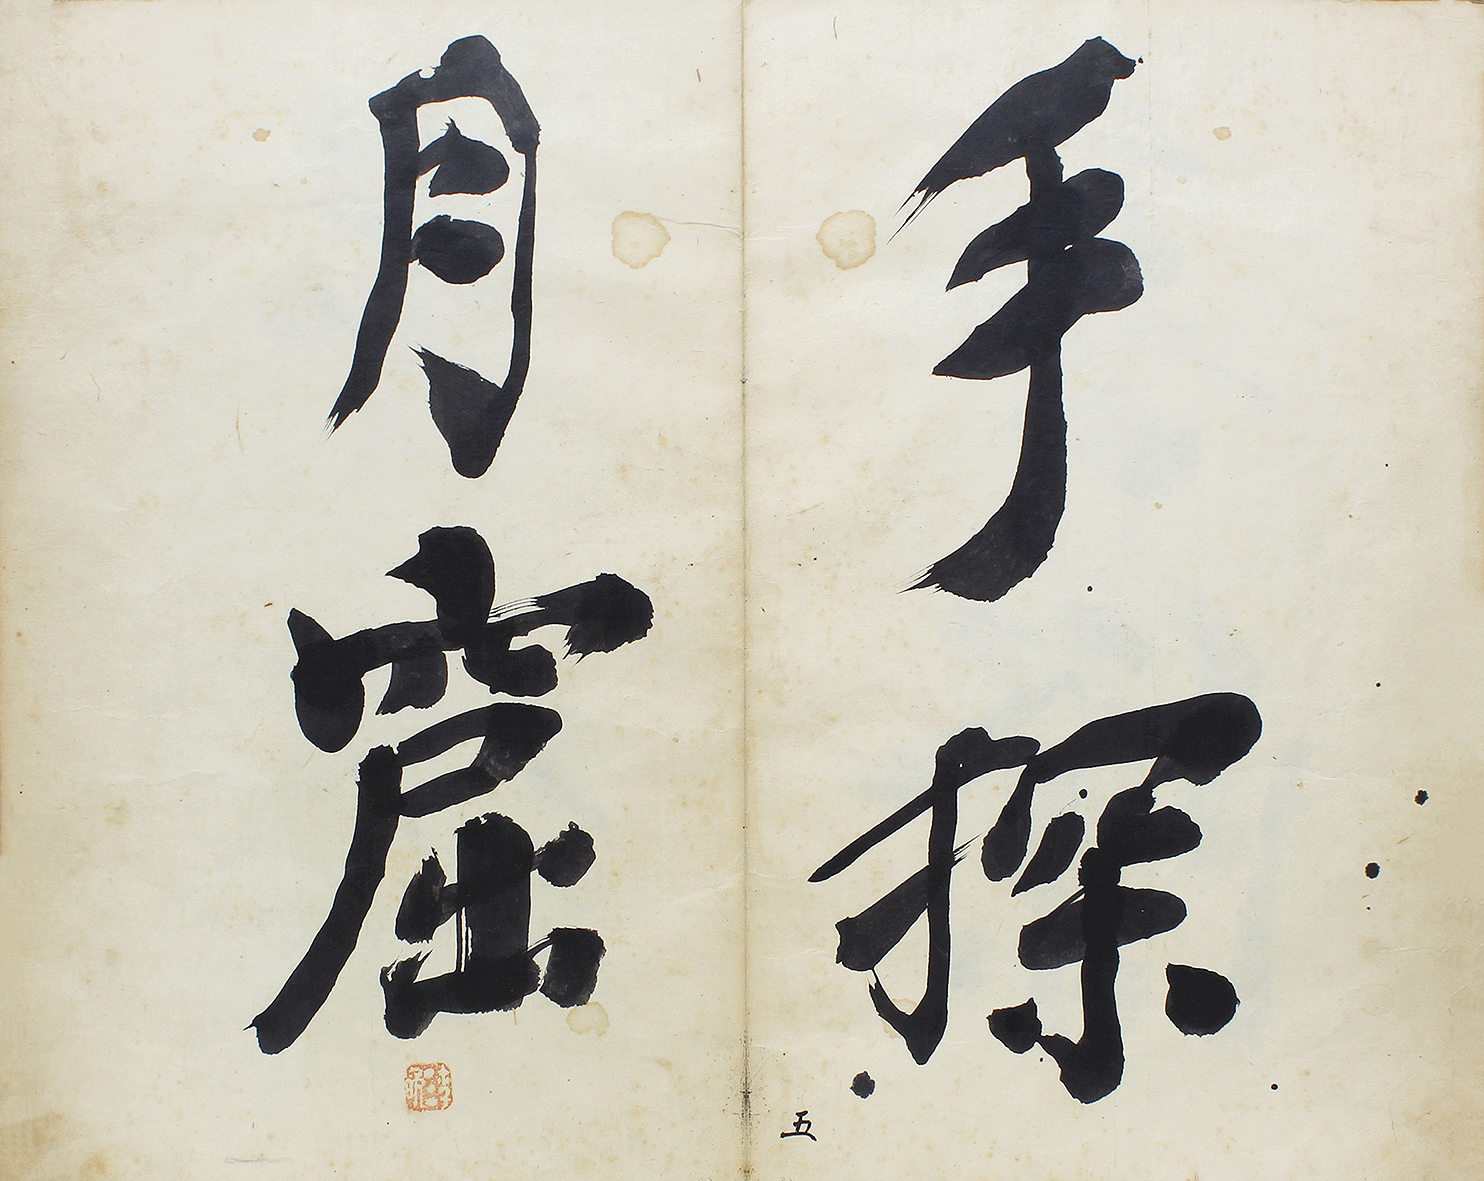 手探
月窟
五